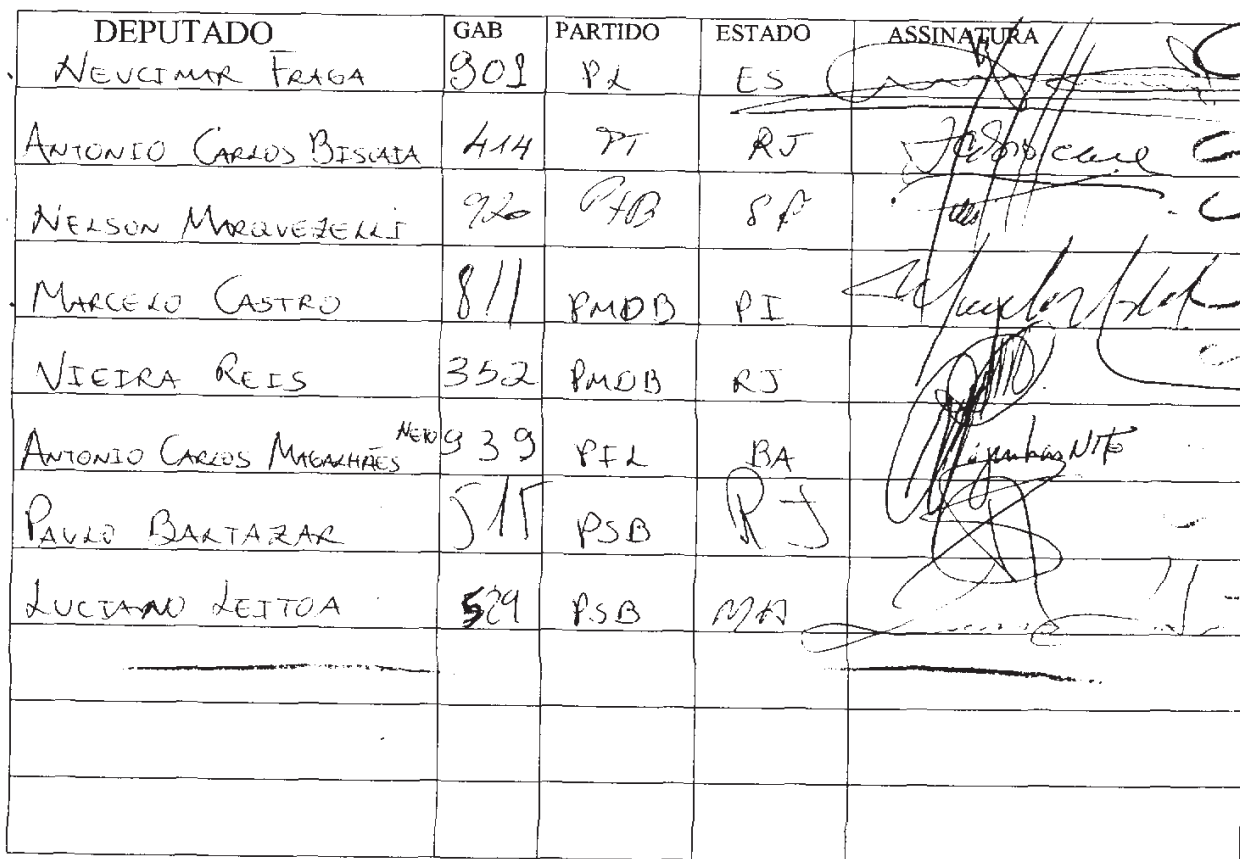 DEPUTADO GAB PARTIDO ESTADO ASSINATURA
NEUCIMAR FRAGA 901 PL ES
ANTONIO CARLOS BISCAIA 414 PT RJ
NELSON MARQUEZELLI 920 PTB SP
MARCELO CASTRO 811 PMDB PI
VIEIRA REIS 352 PMDB RJ
ANTONIO CARLOS MAGALHÃES NETO 939 PFL BA
PAULO BALTAZAR 515 PSB RJ
LUCIANO LEITOA 529 PSB MA